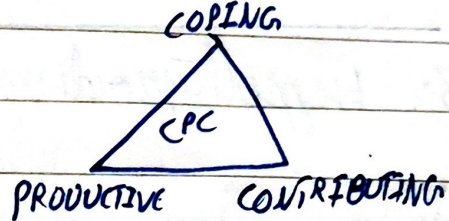 COPING
CPC
PRODUCTIVE CONTRIBUTING